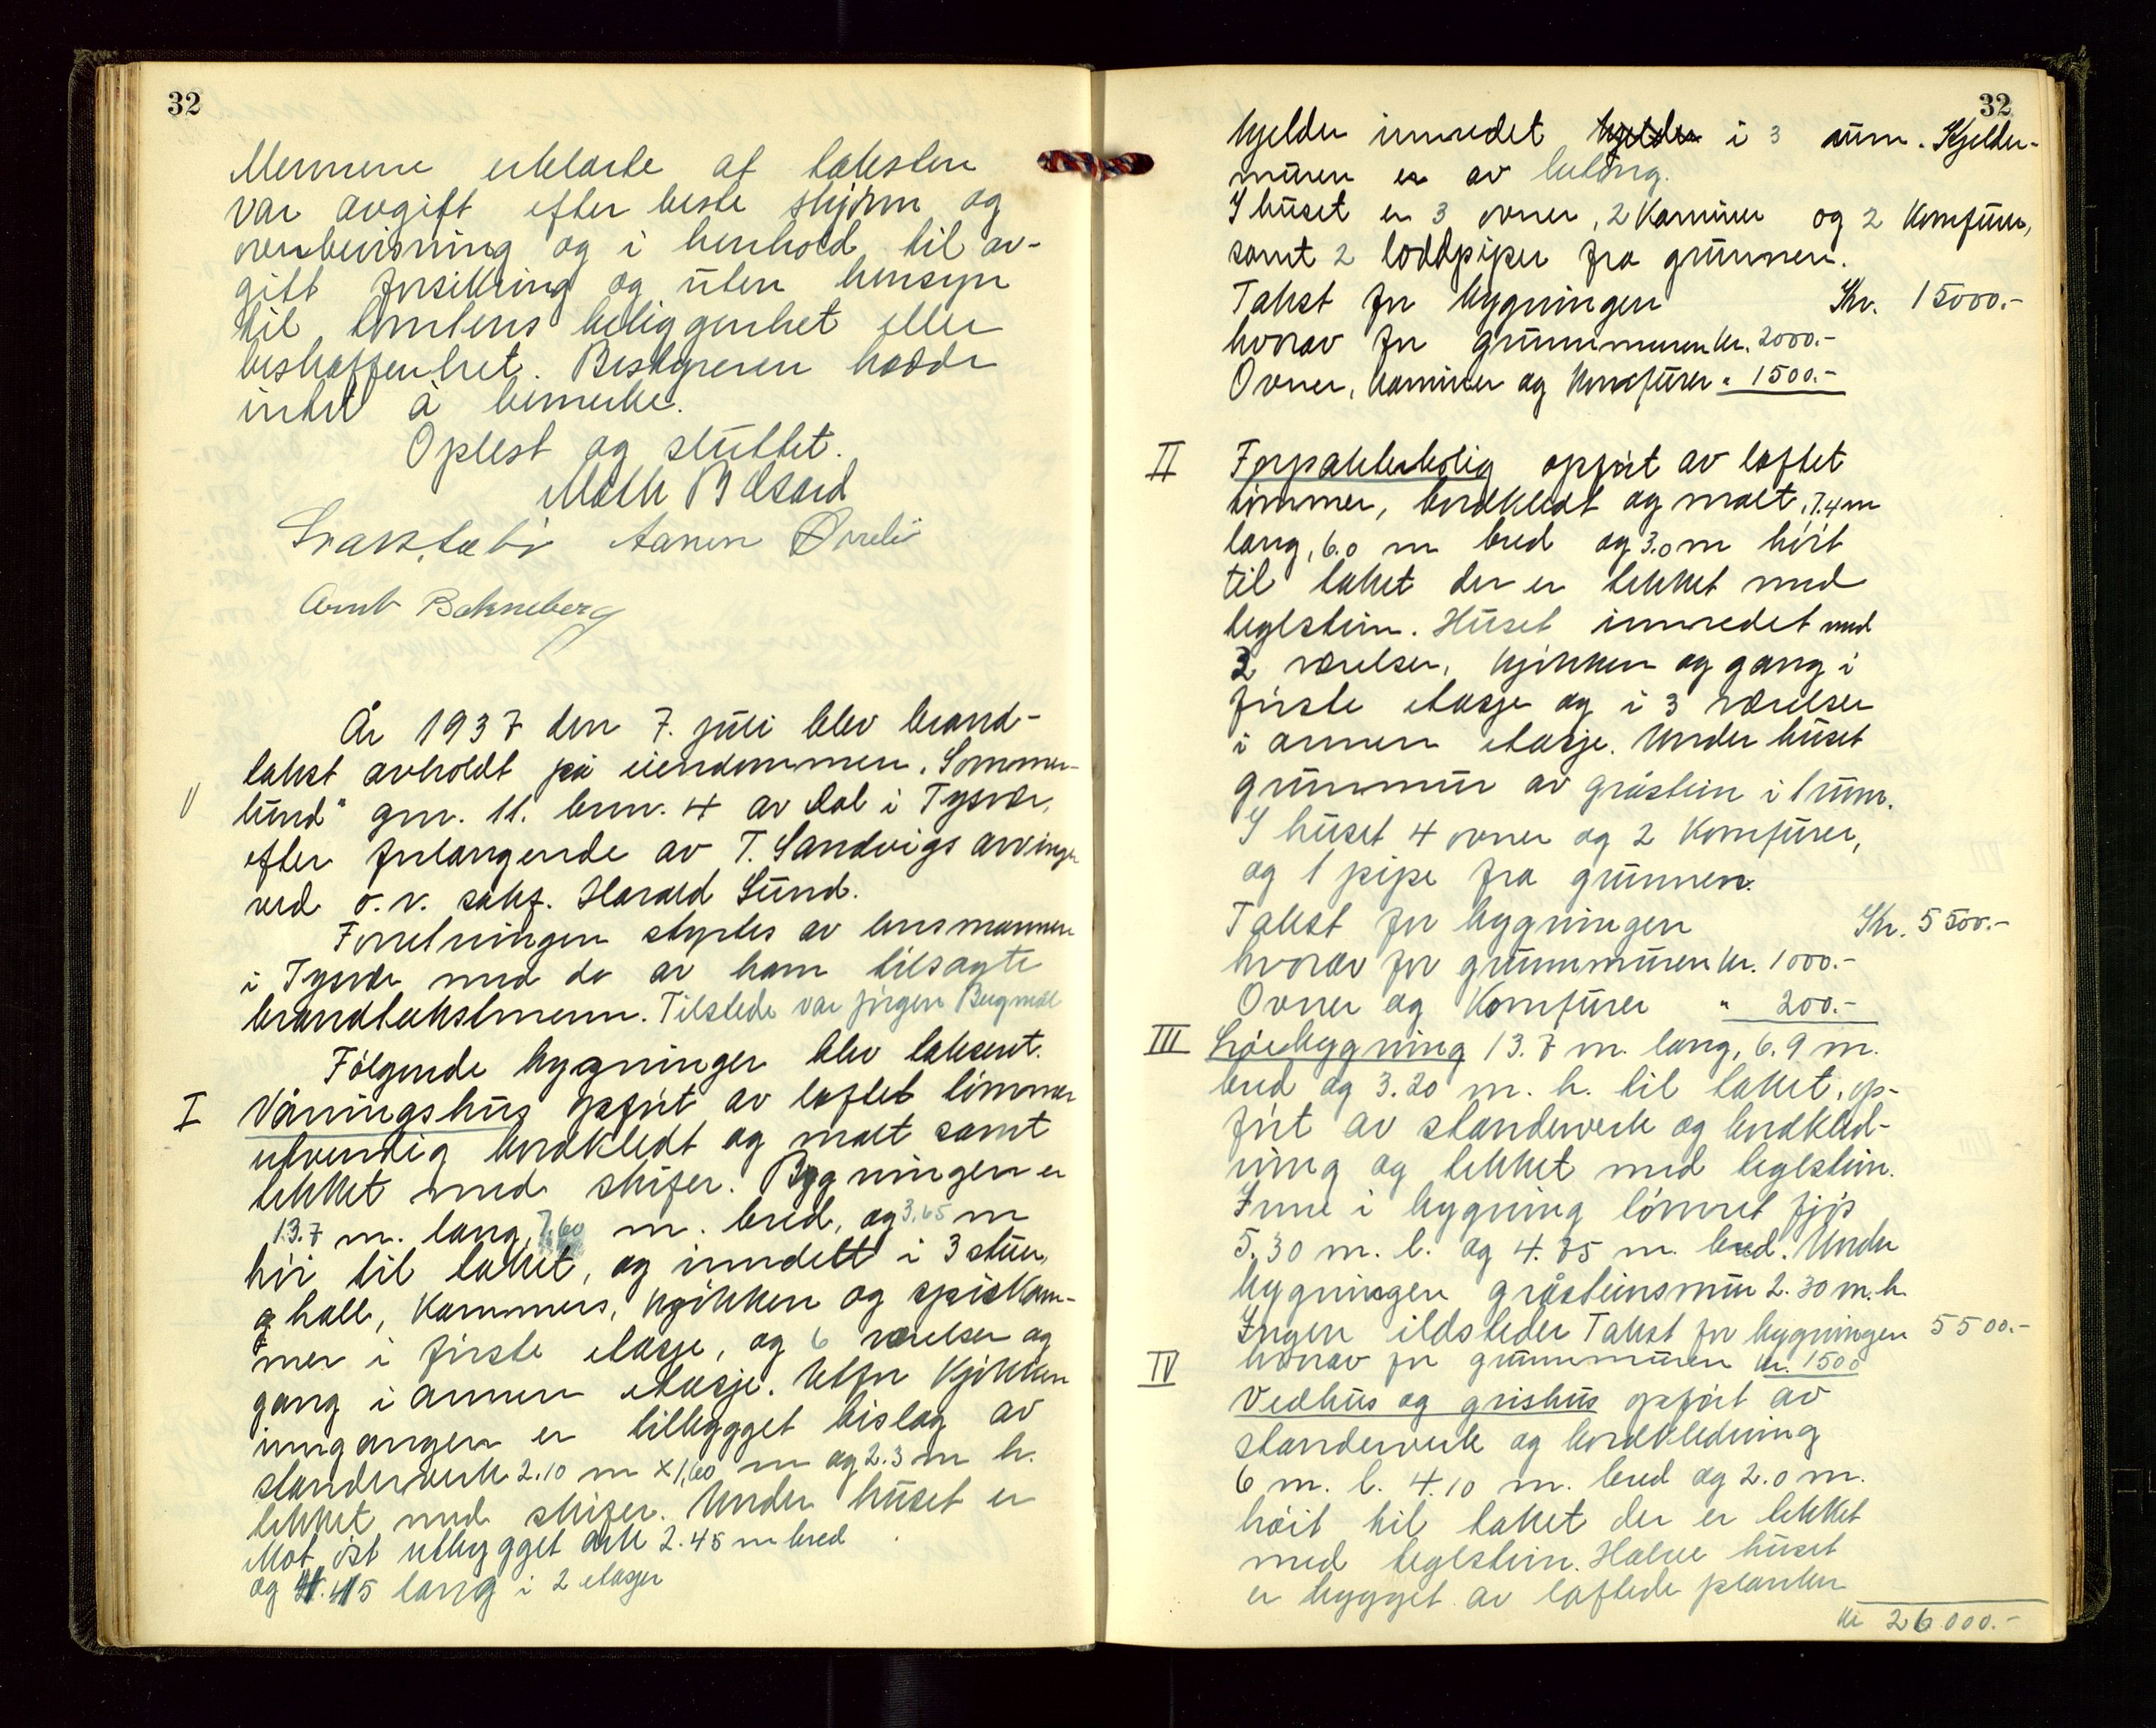 32
Mennene erklærte at taksten
var avgitt efter beste skjønn og
overbevisning og i henhold til av-
gitt forsikring og uten hensyn
til tomtens beliggenhet eller
beskaffenhet. Bestyreren hadde
intet å bemerke.
Oplest og sluttet.
Math B Øsard
Aanen
Arnt Bakneberg
År 1937 den 7. juli blev brand-
takst avholdt på eiendommen „Sommer-
V
lund" gnr. 11. bnr. 4 av Dal i Tysvær,
efter forlangende av T. Sandvigs arvinger
ved o.r. sakf. Harald Sund.
Forretningen styrtes av lensmannen
i Tysvær med de av ham tilsagte
brandtakstmenn. Tilstede var Jörgen
Følgende bygninger blev taksert.
I Våningshus opført av loftet tømmer
utvendig bordkledt og malt samt
tekket med skifer. Bygningen er
13.7 m. lang, 7.60 m. bred, og 3.65 m
høi til taket, og inndelt i 3 stuer,
g hall, kammers, kjøkken og spiskam-
mer i første etasje, og 6 værelser og
gang i annen etasje. Utfor kjøkken
inngangen er tilbygget bislag av
standerverk 2.10 m x 1,60 m og 2.3 m h.
tekket med skifer. Under huset er
Mot øst utbygget ark 2.45 m bred
og 4.45 lang i 2 etasjer
32
kjelder innredet kjelder i 3 rum. Kjelder-
muren er av betong.
I huset er 3 ovner, 2 kaminer og 2 komfurer,
samt 2 loddpiper fra grunnen.
Takst for bygningen Kr. 15000.-
hvorav for grunnmuren kr. 2000.-
Ovner, kaminer og komfurer " 1500.-
II Forpakterbolig opført av loftet
tømmer, bordkledt og malt, 7.4 m
lang, 6.0 m bred og 3.0 m høit
til taket der er tekket med
teglstein. Huset innredet med
2 værelser, kjøkken og gang i
første etasje og i 3 værelser
i annen etasje. Under huset
grunnmur av gråstein i 1 rum.
I huset 4 ovner og 2 komfurer,
og 1 pipe fra grunnen.
Takst for bygningen Kr. 5500.-
hvorav for grunnmuren kr. 1000.-
Ovner og komfurer " 200.-
III Løebygning 13.7 m. lang, 6.9 m.
bred og 3.20 m. h. til taket, op-
ført av standerverk og bordkled-
ning og tekket med teglstein.
Inne i bygning tømret fjøs
5.30 m. l. og 4.75 m. bred. Under
bygningen gråsteinsmur 2.30 m. h.
Ingen ildsteder Takst for bygningen 5500.-
hvorav for grunnmuren kr. 1500
IV
Vedhus og grishus opført av
standerverk og bordkledning
6 m. l. 4.10 m. bred og 2.0 m.
høit til taket der er tekket
med teglstein. Halve huset
er bygget av loftede planker
kr 26000.-